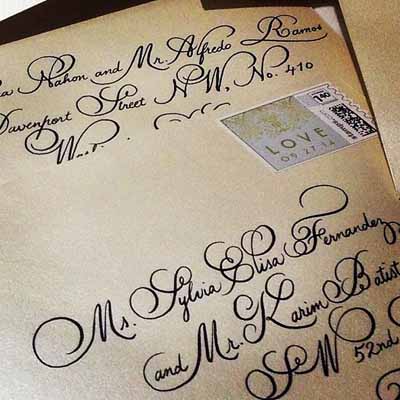 Mahon and Mr. Alfredo Ramos
Davenport Street NW, No. 410
1.40
stamps.com
LOVE
09.27.14
Ms. Sylvia Elisa Fernandez
and Mr. Karim Batist
SW 52nd